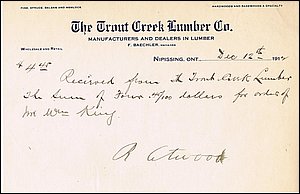 PINE, SPRUCE, BALSAM AND HEMLOCK
HARDWOODS AND BASSWOOD A SPECIALTY
The Trout Creek Lumber Co.
MANUFACTURERS AND DEALERS IN LUMBER
WHOLESALE AND RETAIL
F. BAECHLER, MANAGER
NIPISSING, ONT. Dec 12th 1912
$4.45
Received from the Trout Creek Lumber
the Sum of Four 45/100 dollars for order of
Mr Wm King
R Atwood